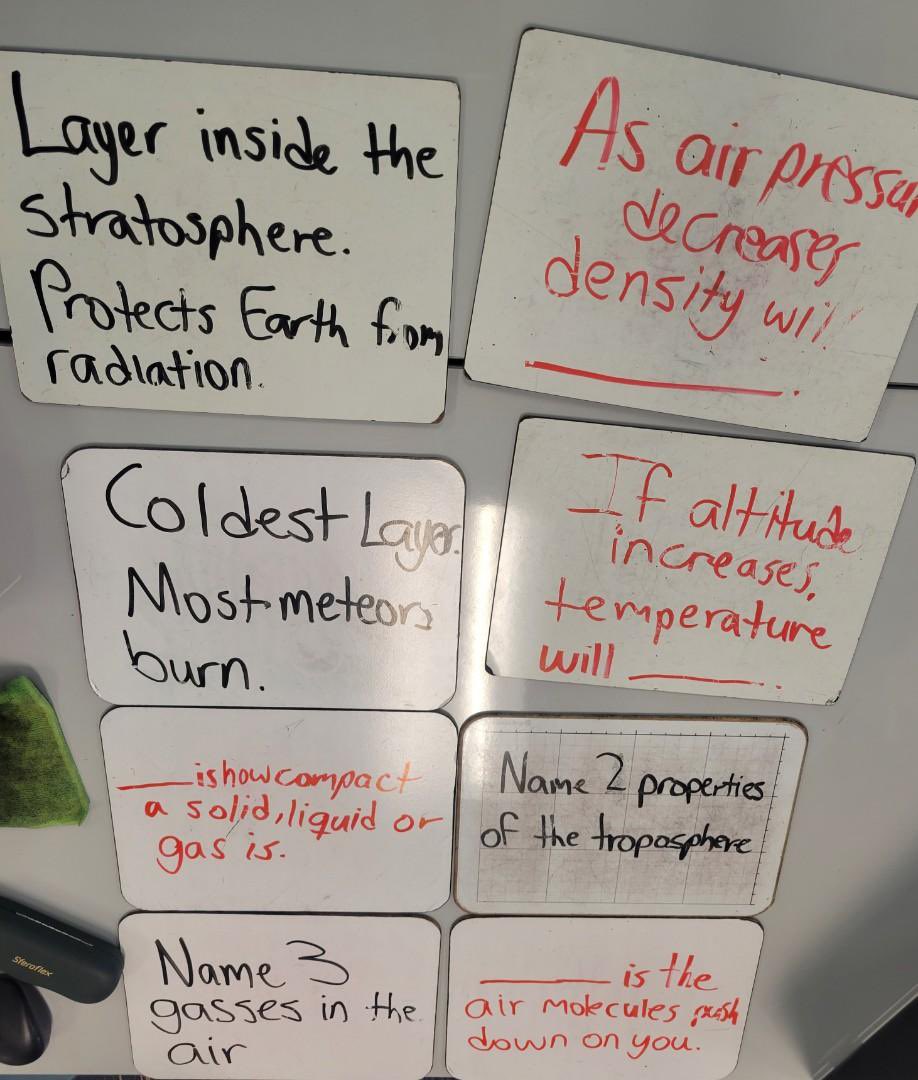 Layer inside the
stratosphere.
Protects Earth from
radiation.
As air pressur
decreases
density will
.
Coldest Layer.
Most meteors
burn.
If altitude
increases,
temperature
will ______.
____ is how compact
a solid, liquid or
gas is.
Name 2 properties
of the troposphere
Name 3
gasses in the
air
______ is the
air molecules push
down on you.
Sferoflex